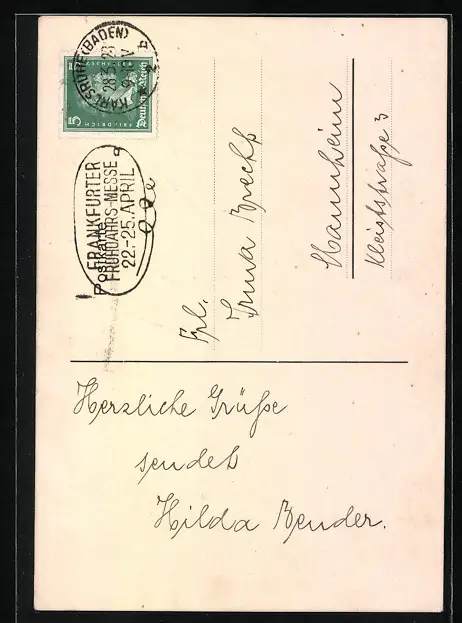 KARLSRUHE (BADEN)
Deutsches Reich
FRIEDRICH
5
Postkarte
FRANKFURTER
FRÜHJAHRS-MESSE
22.-25. APRIL
Frl.
Irma
Mannheim
Kleiststraße 3
Herzliche Grüße
sendet
Hilda Bender.